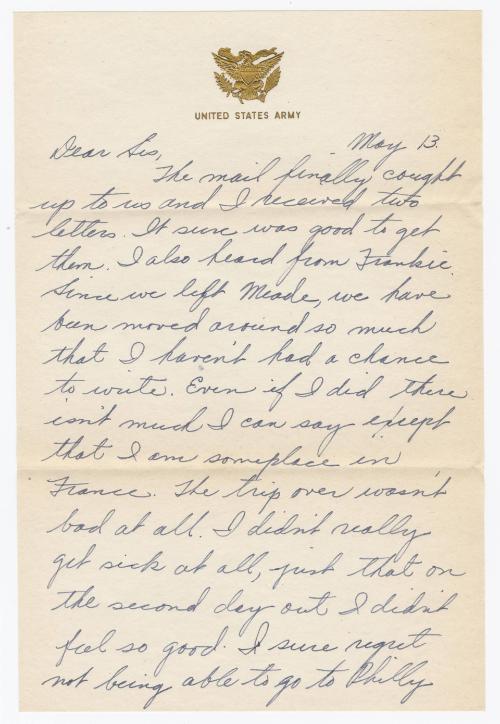 UNITED STATES ARMY
May 13
Dear Sis,
The mail finally cought
up to us and I received two
letters. It sure was good to get
them. I also heard from Frankie.
Since we left Meade, we have
been moved around so much
that I haven't had a chance
to write. Even if I did there
isn't much I can say except
that I am someplace in
France. The trip over wasn't
bad at all. I didn't really
get sick at all, just that on
the second day out I didn't
feel so good. I sure regret
not being able to go to Philly